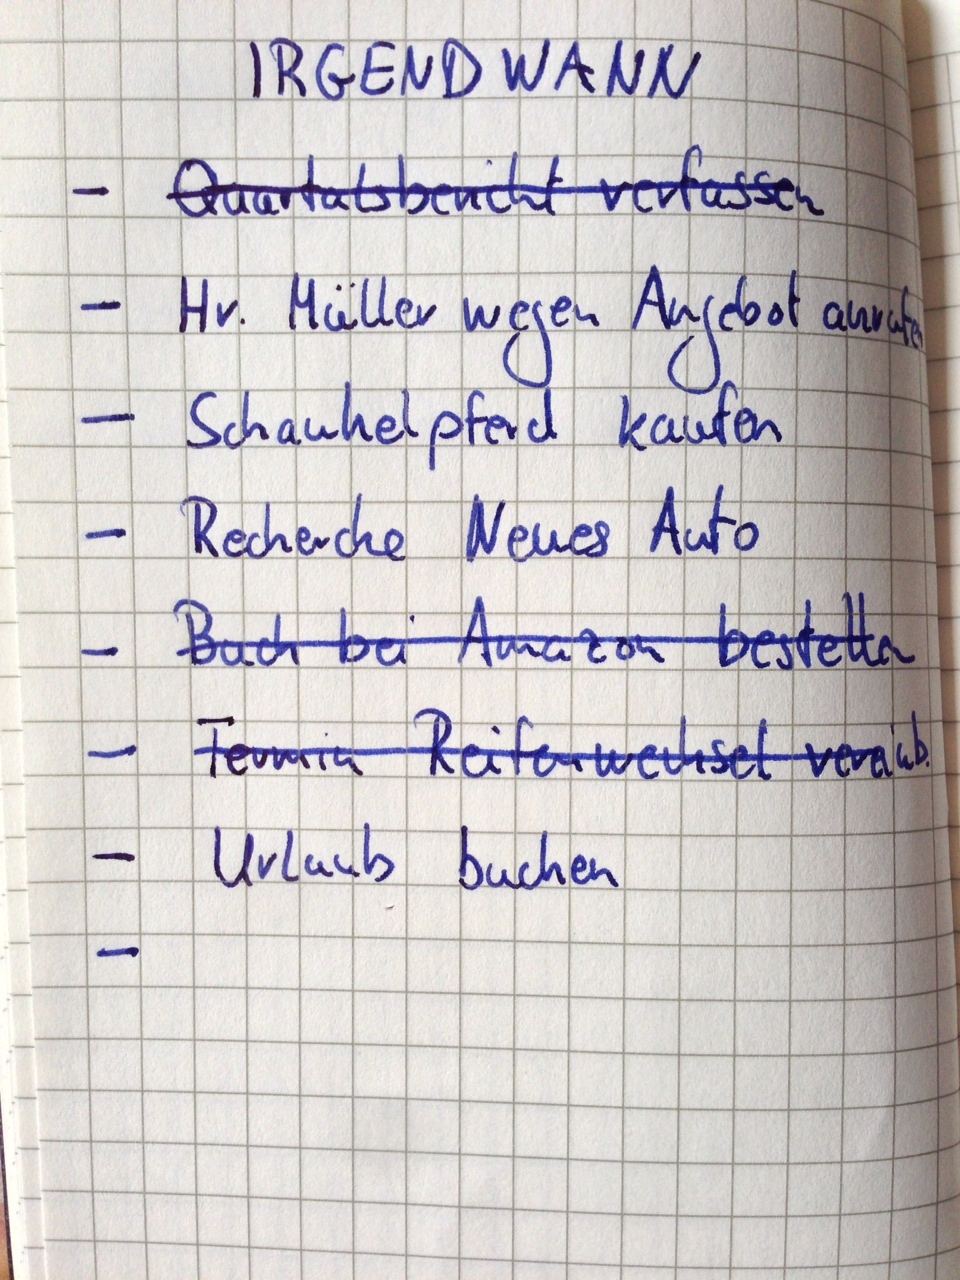 IRGENDWANN
- Quartalsbericht verfassen
- Hr. Müller wegen Angebot anrufen
- Schaukelpferd kaufen
- Recherche Neues Auto
- Buch bei Amazon bestellen
- Termin Reifenwechsel vereinb.
- Urlaub buchen
-